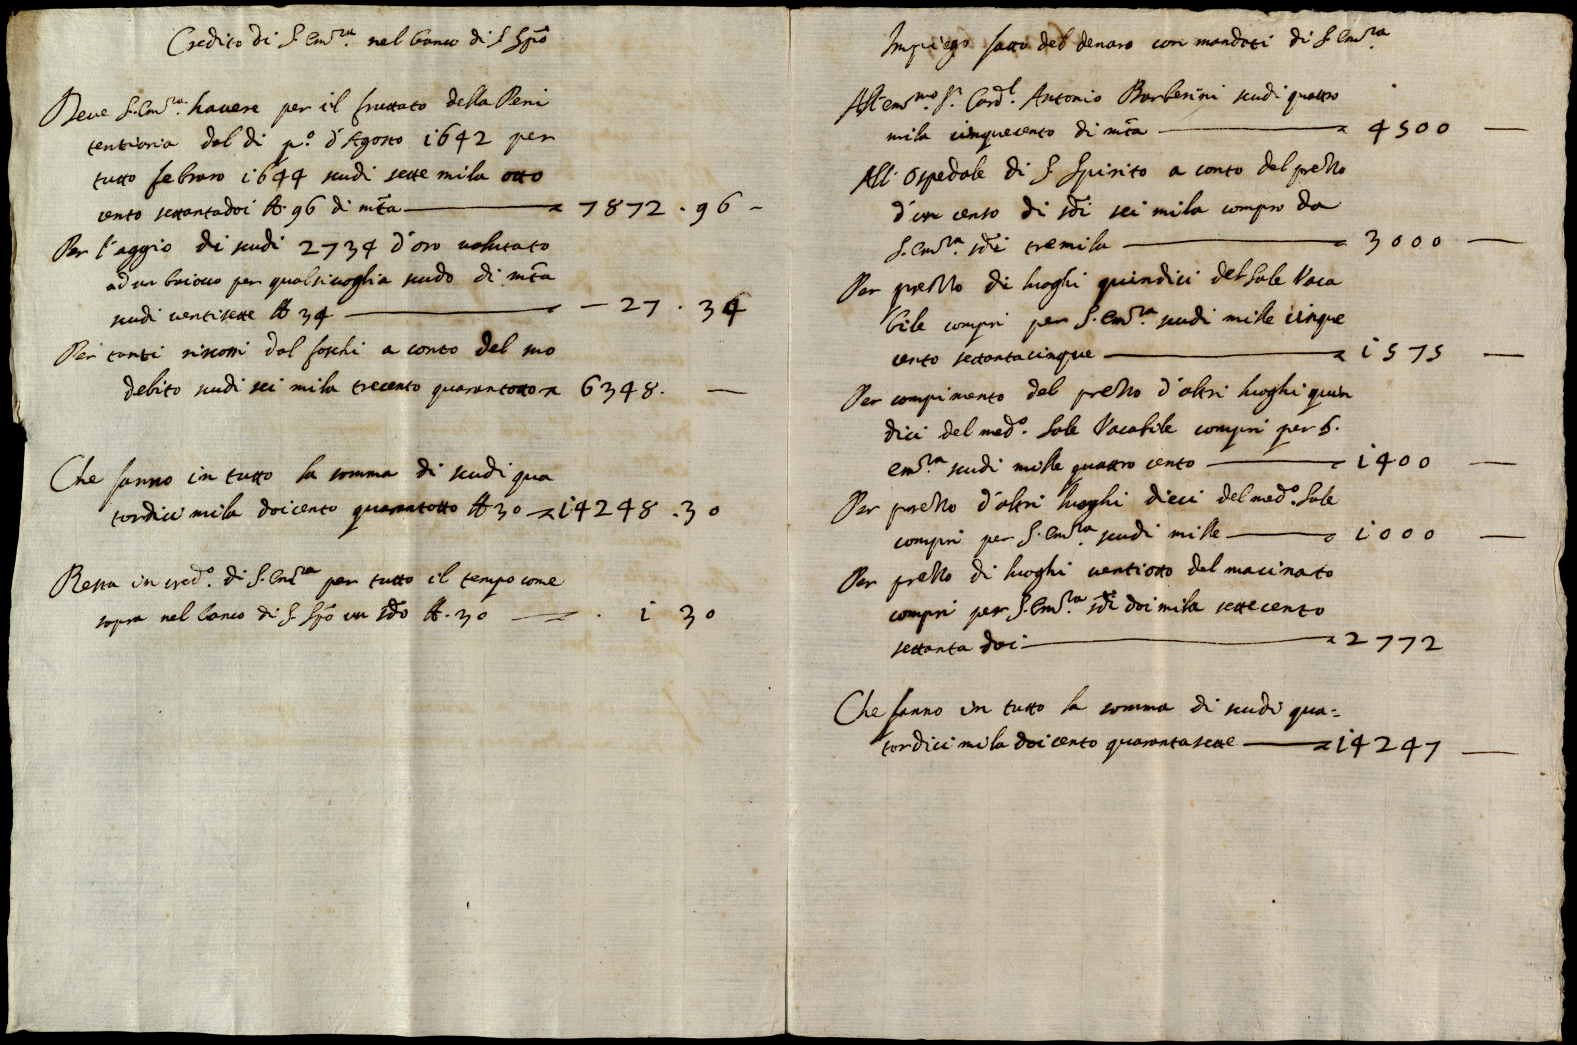 Credito di S. Em.za nel banco di S. Spō
Deve S. Em.za havere per il fruttato della Peni
tentiaria dal di p.o d'Agosto 1642 per
tutto febraro 1644 scudi sette mila otto
cento settantadoi 96 di mta 7872.96
Per l'aggio di scudi 2734 d'oro valutato
ad un baiocco per qualsivoglia scudo di mta
scudi ventisette 34 — 27.34
Per tanti riscossi dal foschi a conto del suo
debito scudi sei mila trecento quarantotto 6348. —
Che fanno in tutto la somma di scudi qua
tordici mila doicento quarantotto 30 14248.30
Resta in cred.o di S. Em.za per tutto il tempo come
sopra nel banco di S. Spō un sdo 30 — . 1 30
Impiego fatto del denaro con mandati di S. Em.za
All'em.mo S.r Card.l Antonio Barberini scudi quattro
mila cinquecento di mta — 4500 —
All'Ospedale di S. Spirito a conto del prezzo
d'un censo di sdi sei mila compro da
S. Em.za sdi tremila — 3000 —
Per prezzo di luoghi quindici del Sale Vaca
bile compri per S. Em.za scudi mille cinque
cento settantacinque — 1575 —
Per compimento del prezzo d'altri luoghi quin
dici del med.o Sale Vacabile compri per S.
em.za scudi mille quattro cento — 1400 —
Per prezzo d'altri luoghi dieci del med.o Sale
compri per S. Em.za scudi mille — 1000 —
Per prezzo di luoghi ventiotto del macinato
compri per S. Em.za sdi doi mila settecento
settanta doi — 2772
Che fanno in tutto la somma di scudi qua=
tordici mila doicento quarantasette — 14247 —